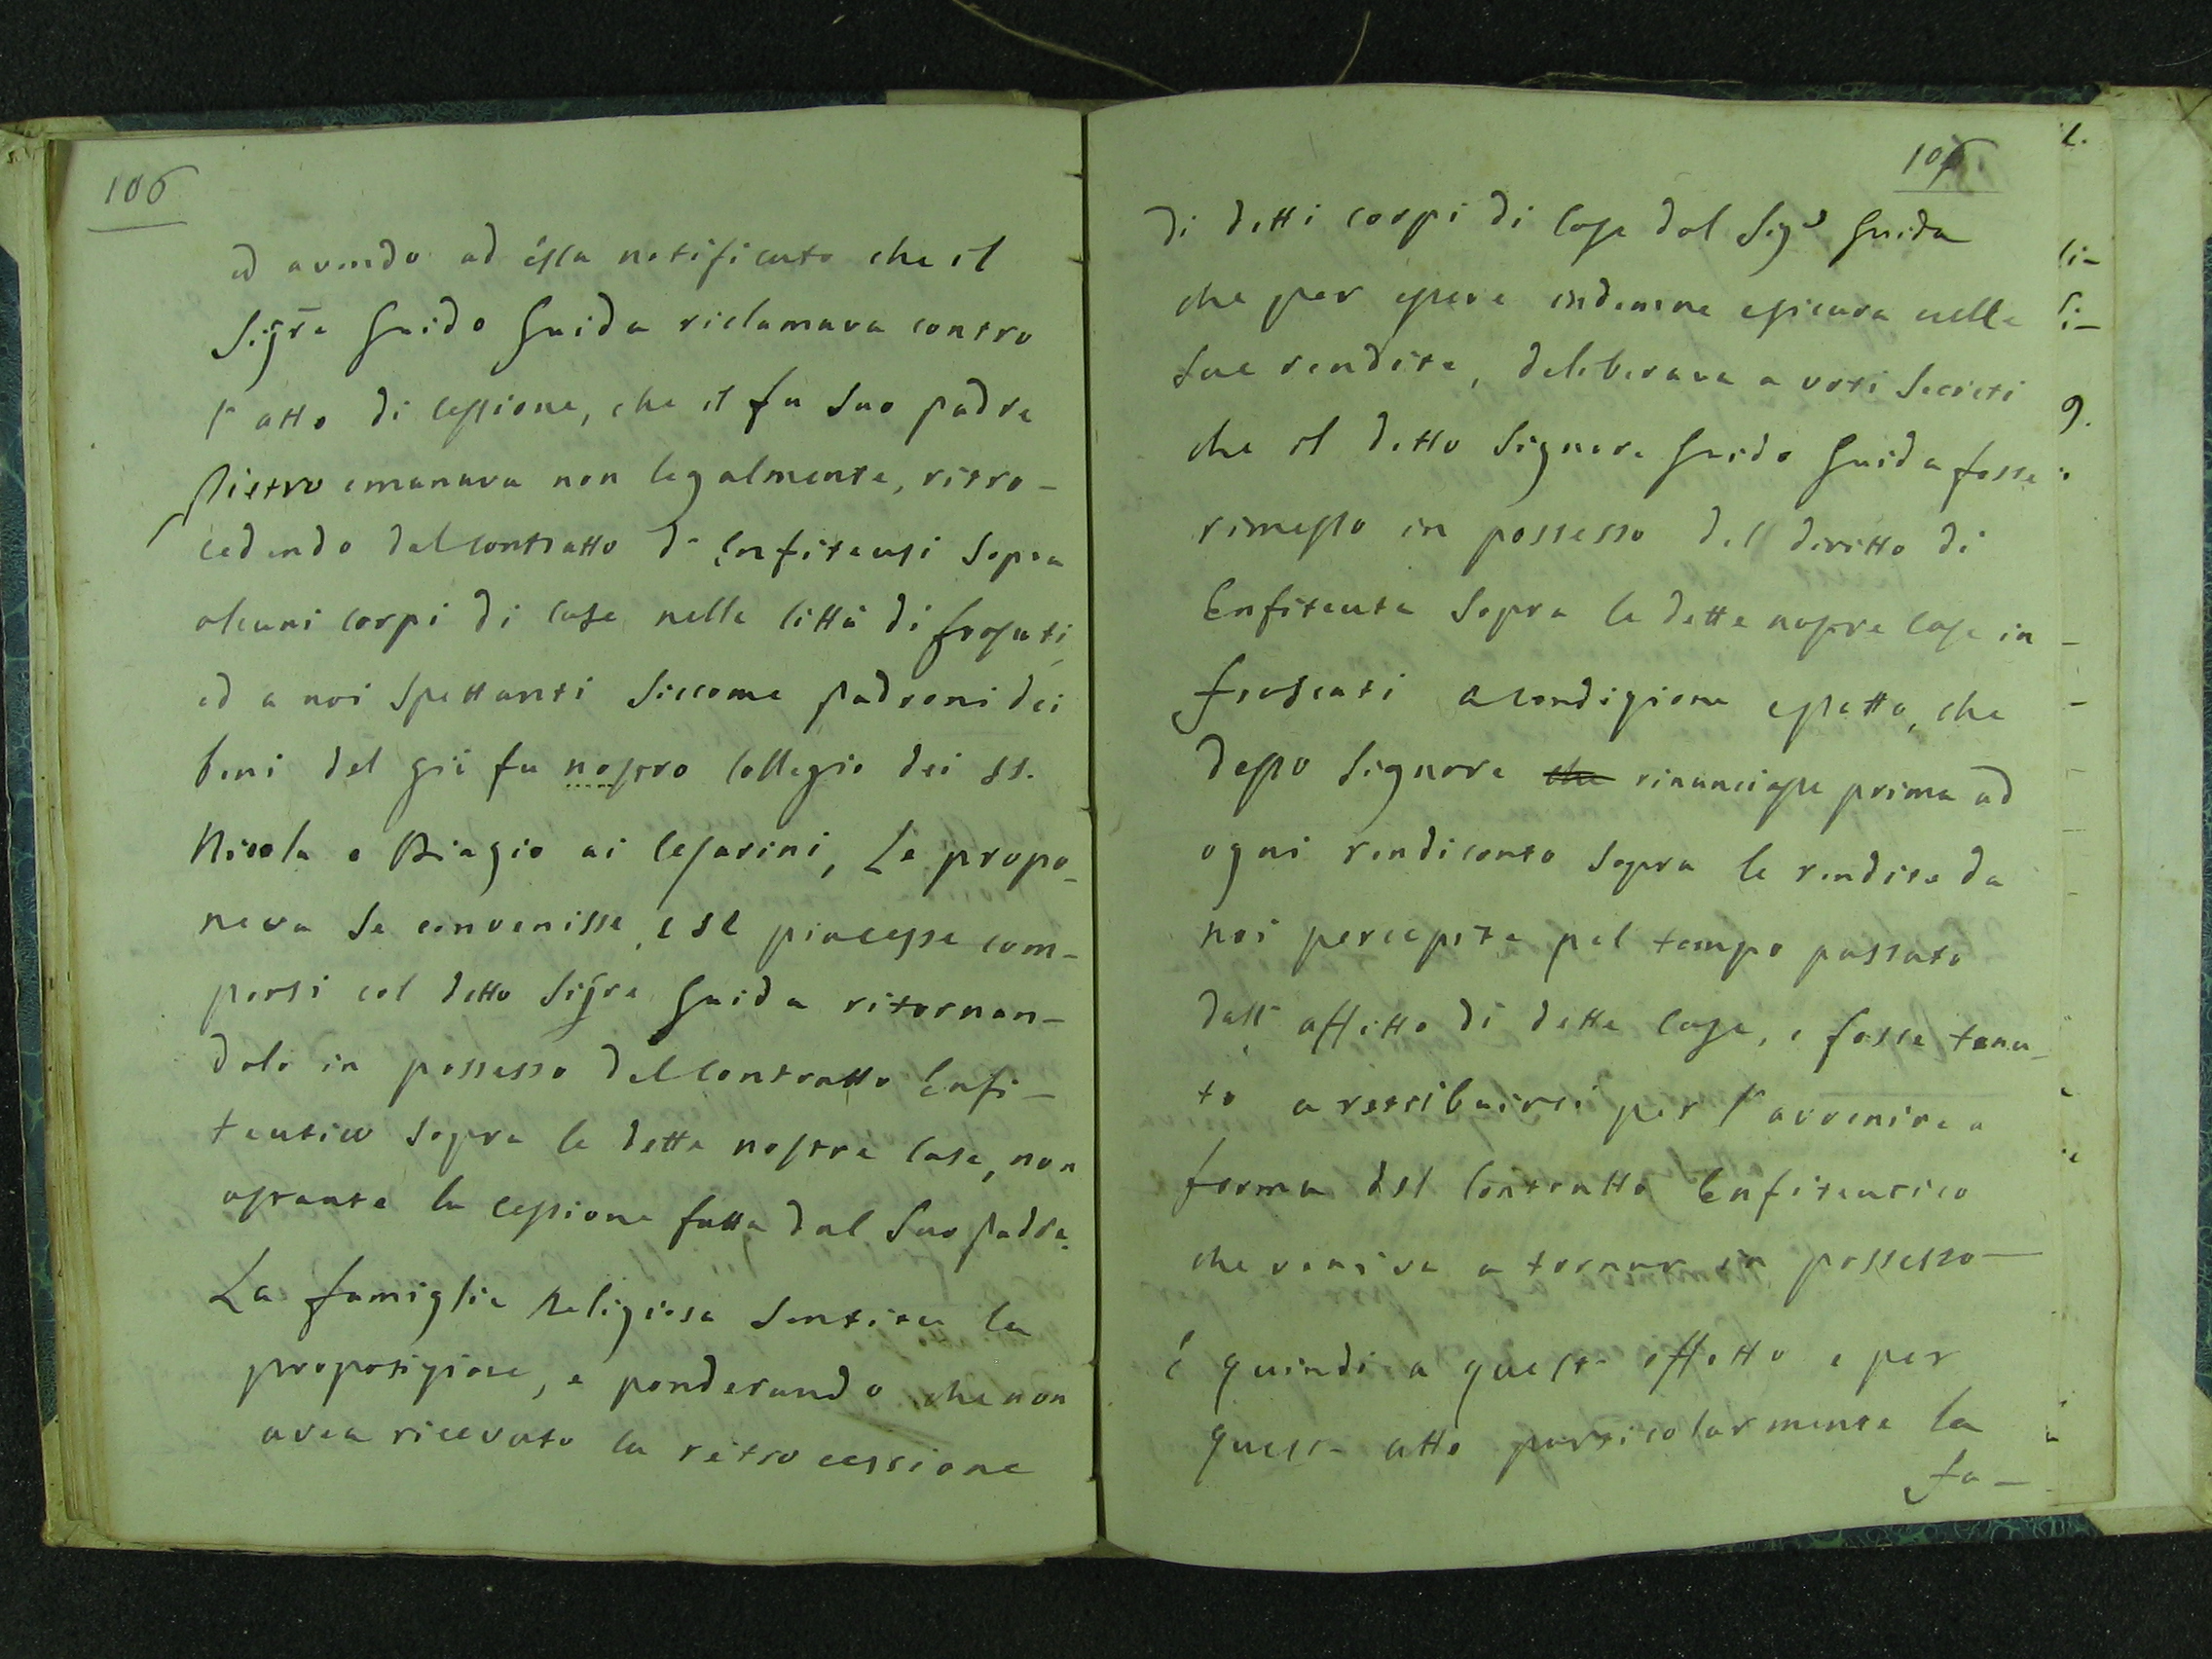 106
ed avendo ad essa notificato che il
Sigre Guido Guida riclamava contro
l'atto di cessione, che il fu Suo padre
Pietro emanava non legalmente, retro-
cedendo dal contratto di Enfiteusi Sopra
alcuni corpi di case nella Città di Frascati
ed a noi Spettanti Siccome padroni dei
beni del già fu nostro Collegio dei SS.
Nicola e Biagio ai Cesarini, Le propo-
neva Se convenisse, e Se piacesse com-
porsi col detto Sigre Guida ritornan-
dolo in possesso del Contratto Enfi-
teutico Sopra le dette nostre Case, non
ostante la cessione fatta dal Suo Padre.
La famiglia Religiosa Sentita la
proposizione, e ponderando che non
avea ricevuto la retrocessione
di detti corpi di Case dal Sigr Guida
che per essere indenne e sicura nelle
Sue rendite, deliberava a voti Secreti
che il detto Signore Guido Guida fosse
rimesso in possesso del diritto di
Enfiteuta Sopra le dette nostre Case in
Frascati a condizione espetto, che
desso Signore che rinunciasse prima ad
ogni rendiconto Sopra le rendite da
noi percepite pel tempo passato
dall'affitto di dette Case, e fosse tenu-
to a retribuirci per l'avvenire a
forma del Contratto Enfiteutico
che veniva a tornar in possesso
E quindi a questo effetto e per
questo atto particolarmente la
fa-